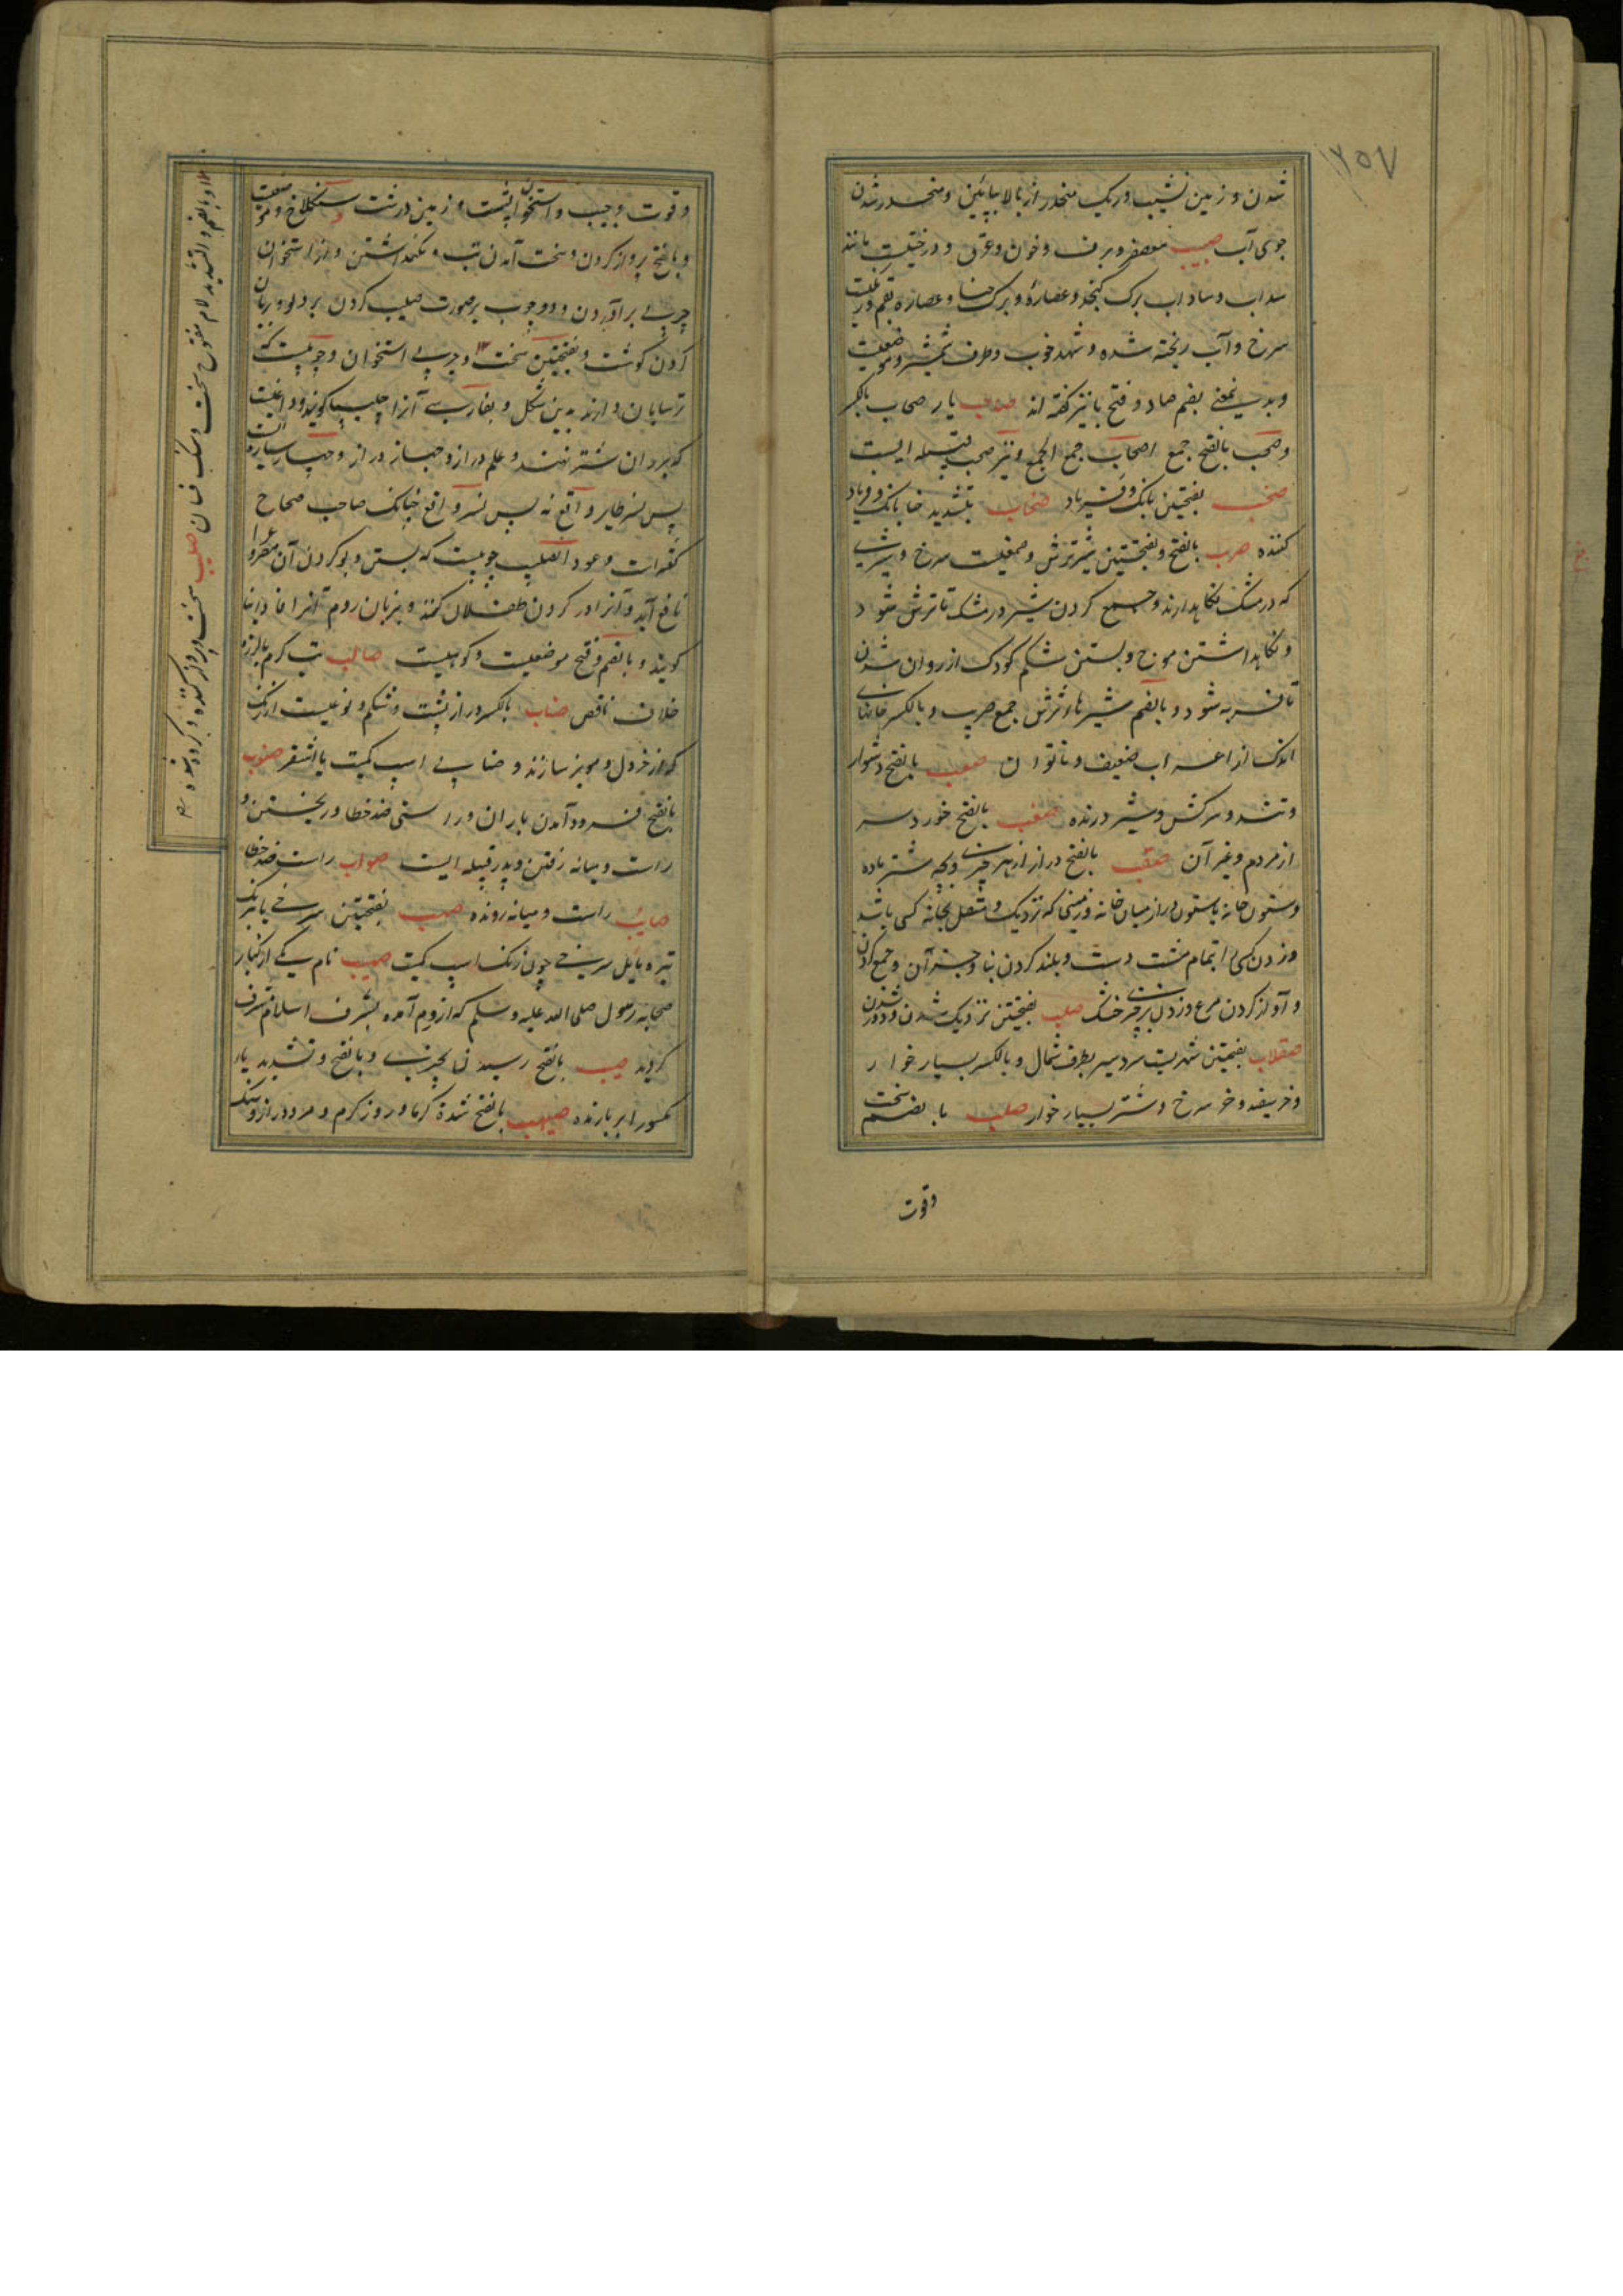 ۲۵۷
شدن و زمین نشیب و ریک منحدر از بالا بپائین و منحدر شدن
جوی آب صبیب معصفر و برف و خون و عرق و درختیست مانند
سداب و ساداب برک کنجد و عصاره و برک حنا و عصاره بقم و رنگیست
سرخ و آب ریخته شده و شهد خوب و طرف شمشیر و موضعیست
و بدین معنی بضم صاد و فتح با نیز گفته اند صاحب یار صحاب بالکسر
و صحب بالفتح جمع اصحاب جمع الجمع و نیز صحب قبیله ایست
صخب بفتحتین بانک و فریاد صخاب بتشدید خا بانک و فریاد
کننده صرب بالفتح و بفتحتین شیر ترش و صمغیست سرخ و شیری
که در مشک نکاهدارند و جمع کردن شیر در مشک تا ترش شود
و نکاهداشتن و بستن شکم کودک از روان شدن
تا فربه شود و بالضم شیرهای ترش جمع صریب و بالکسر خانهای
اندک از اعراب ضعیف و ناتوان صعب بالفتح دشوار
و تند و سرکش و شیر درنده صعنب بالفتح خورد سر
از مردم و غیر آن صقب بالفتح دراز از هر چیزی و بچه شتر ماده
و ستون خانه یا ستون دراز میان خانه و زمینی که نزدیک و متصل بخانه کسی باشد
و زدن کسی را بتمام مشت دست و بلند کردن بنا و جز آن و جمع کردن
و آواز کردن مرغ و زدن بر چیزی خشک صقب بفتحتین نزدیک شدن و دور شدن
صقلاب بفتحتین شهریست سردسیر بطرف شمال و بالکسر بسیار خوار
و خر سفید و خر سرخ و شتر بسیار خوار صلب بالضم سخت
وقوت
و قوت و حسب و استخوان پشت و زمین درشت سنکلاخ و موضعیست
و بالفتح بردار کردن و سخت آمدن تب و نکهداشتن و از استخوان
چربی برآوردن و دو چوب بر صورت صلیب کردن بر دلو و بریان
کردن کوشت و بفتحتین سخت و چربی استخوان و چوبیست که
ترسایان دارند بدین شکل و بفارسی آنرا چلیپا کویند و داغیست
که بر ران شتر نهند و علم دراز و چهار ستاره است
پس نسر طایر واقع نه پس نسر واقع چنانک صاحب صحاح
کفته است و عود الصلیب چوبیست که بستن و بو کردن آن مصروع را
نافع آید و آنرا در کردن طفلان کنند و بزبان روم آنرا فاوانیا
کویند و بالضم و فتح موضعیست و کوهیست صالب تب کرم با لرزه
خلاف نافض صناب بالکسر دراز پشت و شکم و نوعیست از رنک
که از خردل و مویز سازند و صنابی اسپ کمیت یا اشقر صوب
بالفتح فرود آمدن باران و راستی ضد خطا و ریختن و
راست و میانه رفتن و پدر قبیله ایست صواب راست ضد خطا
صایب راست و میانه رونده صهب بفتحتین سرخی با رنک
تیره مایل سرخی چون رنک اسپ کمیت صهیب نام یکی از کبار
صحابه رسول صلی الله علیه وسلم که از روم آمده بشرف اسلام مشرف
کردید صیب بالفتح رسیدن بچیزی و بالفتح و تشدید یاء
مکسور ابر بارنده صیهب بالفتح شدة کرما و روز کرم و مرد دراز و سنک
و بالضم و التشدید لام مفتوح سخت و سنک فسان صلیب سخت و بردار کننده